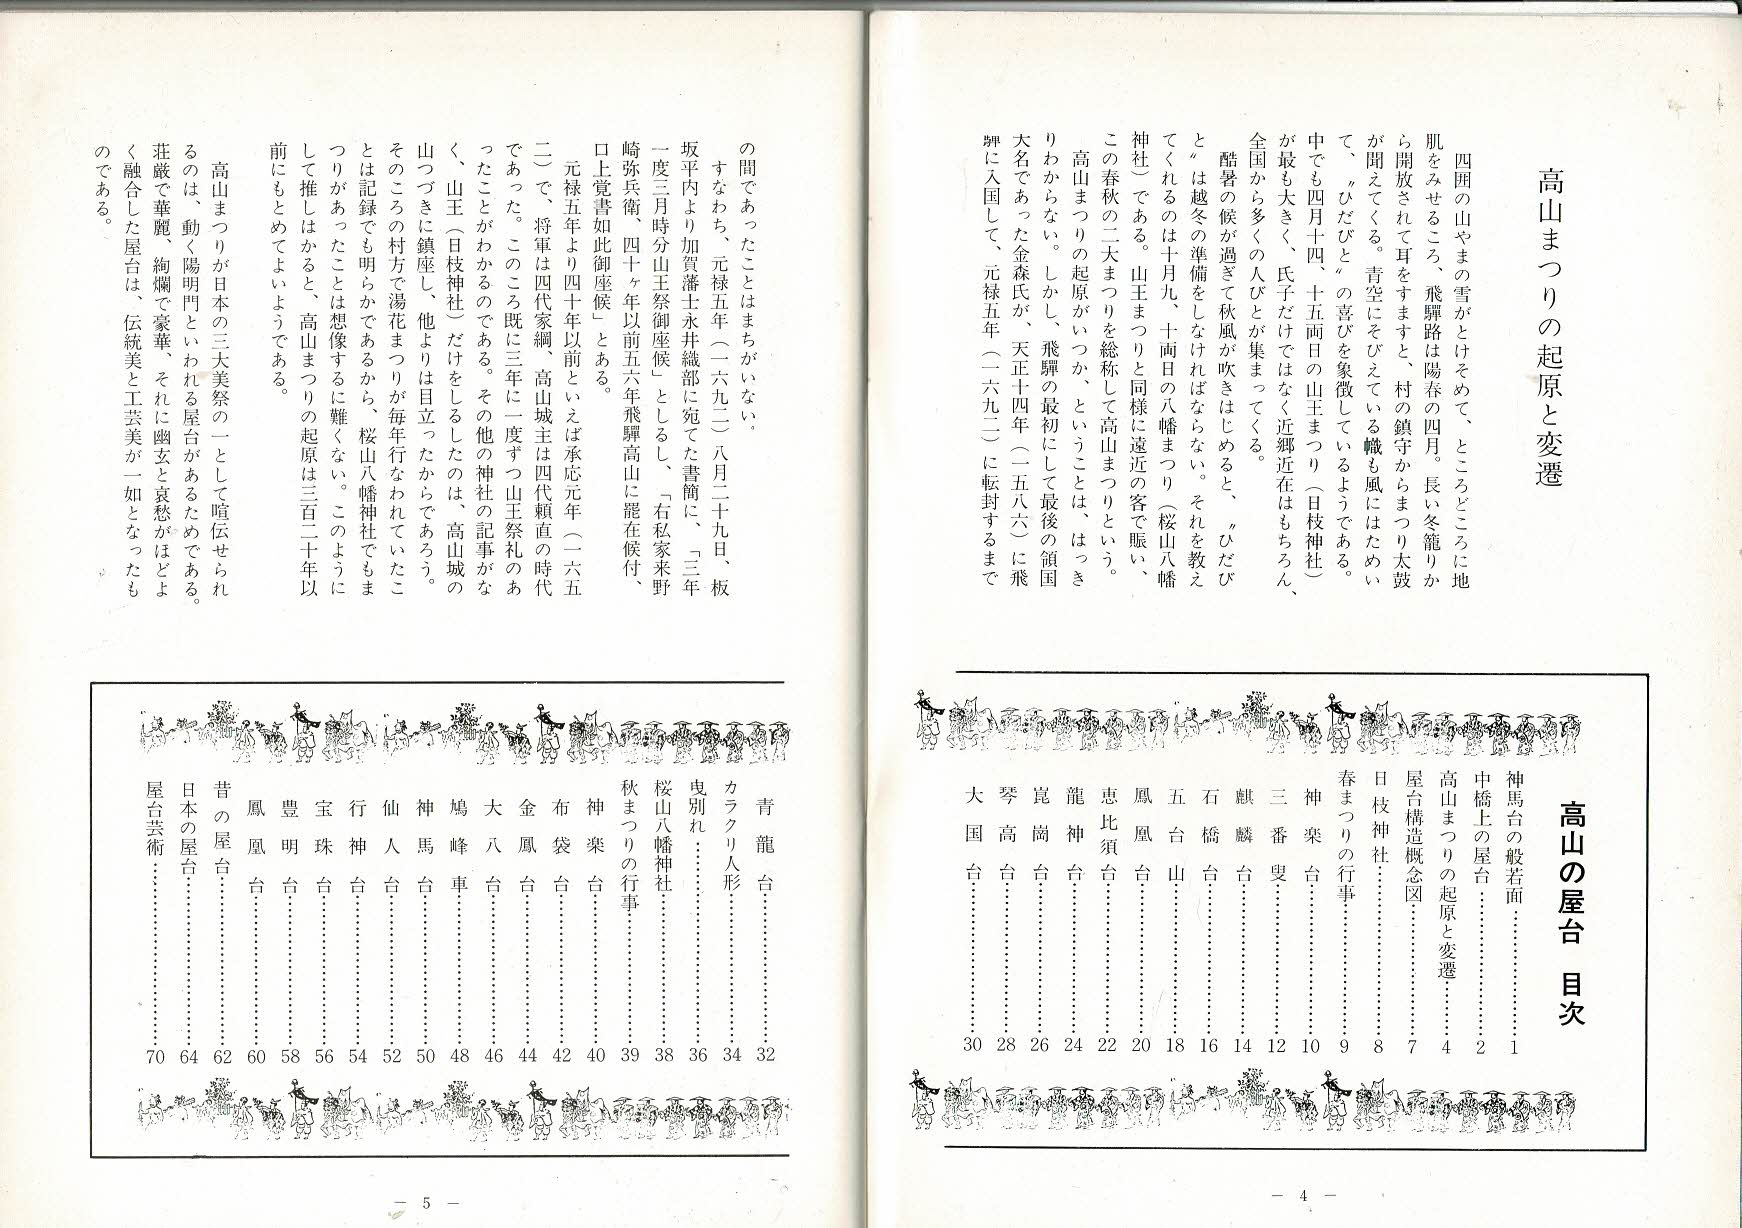 高山まつりの起原と変遷
四囲の山やまの雪がとけそめて、ところどころに地
肌をみせるころ、飛驒路は陽春の四月。長い冬籠りか
ら開放されて耳をすますと、村の鎮守からまつり太鼓
が聞えてくる。青空にそびえている幟も風にはためい
て、〃ひだびと〃の喜びを象徴しているようである。
中でも四月十四、十五両日の山王まつり（日枝神社）
が最も大きく、氏子だけではなく近郷近在はもちろん、
全国から多くの人びとが集まってくる。
酷暑の候が過ぎて秋風が吹きはじめると、〃ひだび
と〃は越冬の準備をしなければならない。それを教え
てくれるのは十月九、十両日の八幡まつり（桜山八幡
神社）である。山王まつりと同様に遠近の客で賑い、
この春秋の二大まつりを総称して高山まつりという。
高山まつりの起原がいつか、ということは、はっき
りわからない。しかし、飛驒の最初にして最後の領国
大名であった金森氏が、天正十四年（一五八六）に飛
驒に入国して、元禄五年（一六九二）に転封するまで
高山の屋台 目次
神馬台の般若面……1
中橋上の屋台……2
高山まつりの起原と変遷……4
屋台構造概念図……7
日枝神社……8
春まつりの行事……9
神楽台……10
三番叟……12
麒麟台……14
石橋台……16
五台山……18
鳳凰台……20
恵比須台……22
龍神台……24
崑崗台……26
琴高台……28
大国台……30
― 4 ―
の間であったことはまちがいない。
すなわち、元禄五年（一六九二）八月二十九日、板
坂平内より加賀藩士永井織部に宛てた書簡に、「三年
一度三月時分山王祭御座候」としるし、「右私家来野
崎弥兵衛、四十ヶ年以前五六年飛驒高山に罷在候付、
口上覚書如此御座候」とある。
元禄五年より四十年以前といえば承応元年（一六五
二）で、将軍は四代家綱、高山城主は四代頼直の時代
であった。このころ既に三年に一度ずつ山王祭礼のあ
ったことがわかるのである。その他の神社の記事がな
く、山王（日枝神社）だけをしるしたのは、高山城の
山つづきに鎮座し、他よりは目立ったからであろう。
そのころの村方で湯花まつりが毎年行なわれていたこ
とは記録でも明らかであるから、桜山八幡神社でもま
つりがあったことは想像するに難くない。このように
して推しはかると、高山まつりの起原は三百二十年以
前にもとめてよいようである。
高山まつりが日本の三大美祭の一として喧伝せられ
るのは、動く陽明門といわれる屋台があるためである。
荘厳で華麗、絢爛で豪華、それに幽玄と哀愁がほどよ
く融合した屋台は、伝統美と工芸美が一如となったも
のである。
青龍台……32
カラクリ人形……34
曳別れ……36
桜山八幡神社……38
秋まつりの行事……39
神楽台……40
布袋台……42
金鳳台……44
大八台……46
鳩峰車……48
神馬台……50
仙人台……52
行神台……54
宝珠台……56
豊明台……58
鳳凰台……60
昔の屋台……62
日本の屋台……64
屋台芸術……70
― 5 ―